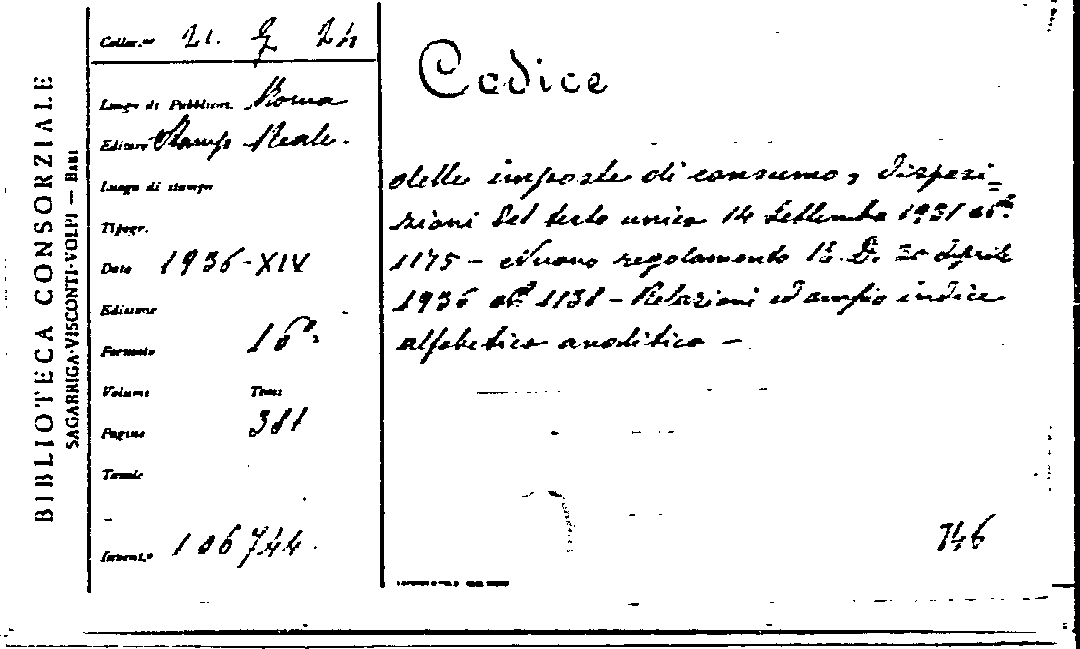 BIBLIOTECA CONSORZIALE
SAGARRIGA-VISCONTI-VOLPI — BARI
Colloc.ne 21. G 24
Luogo di Pubblicaz. Roma
Editore Stamp. Reale.
Luogo di stampa
Tipogr.
Data 1936-XIV
Edizione
Formato 16º
Volumi Tomi
Pagine 381
Tavole
Invent.º 106744
Codice
delle imposte di consumo, disposi=
zioni del testo unico 14 settembre 1931 nº
1175 — Nuovo regolamento R. D. 30 Aprile
1936 nº 1138 — Relazioni ed ampio indice
alfabetico analitico —
746